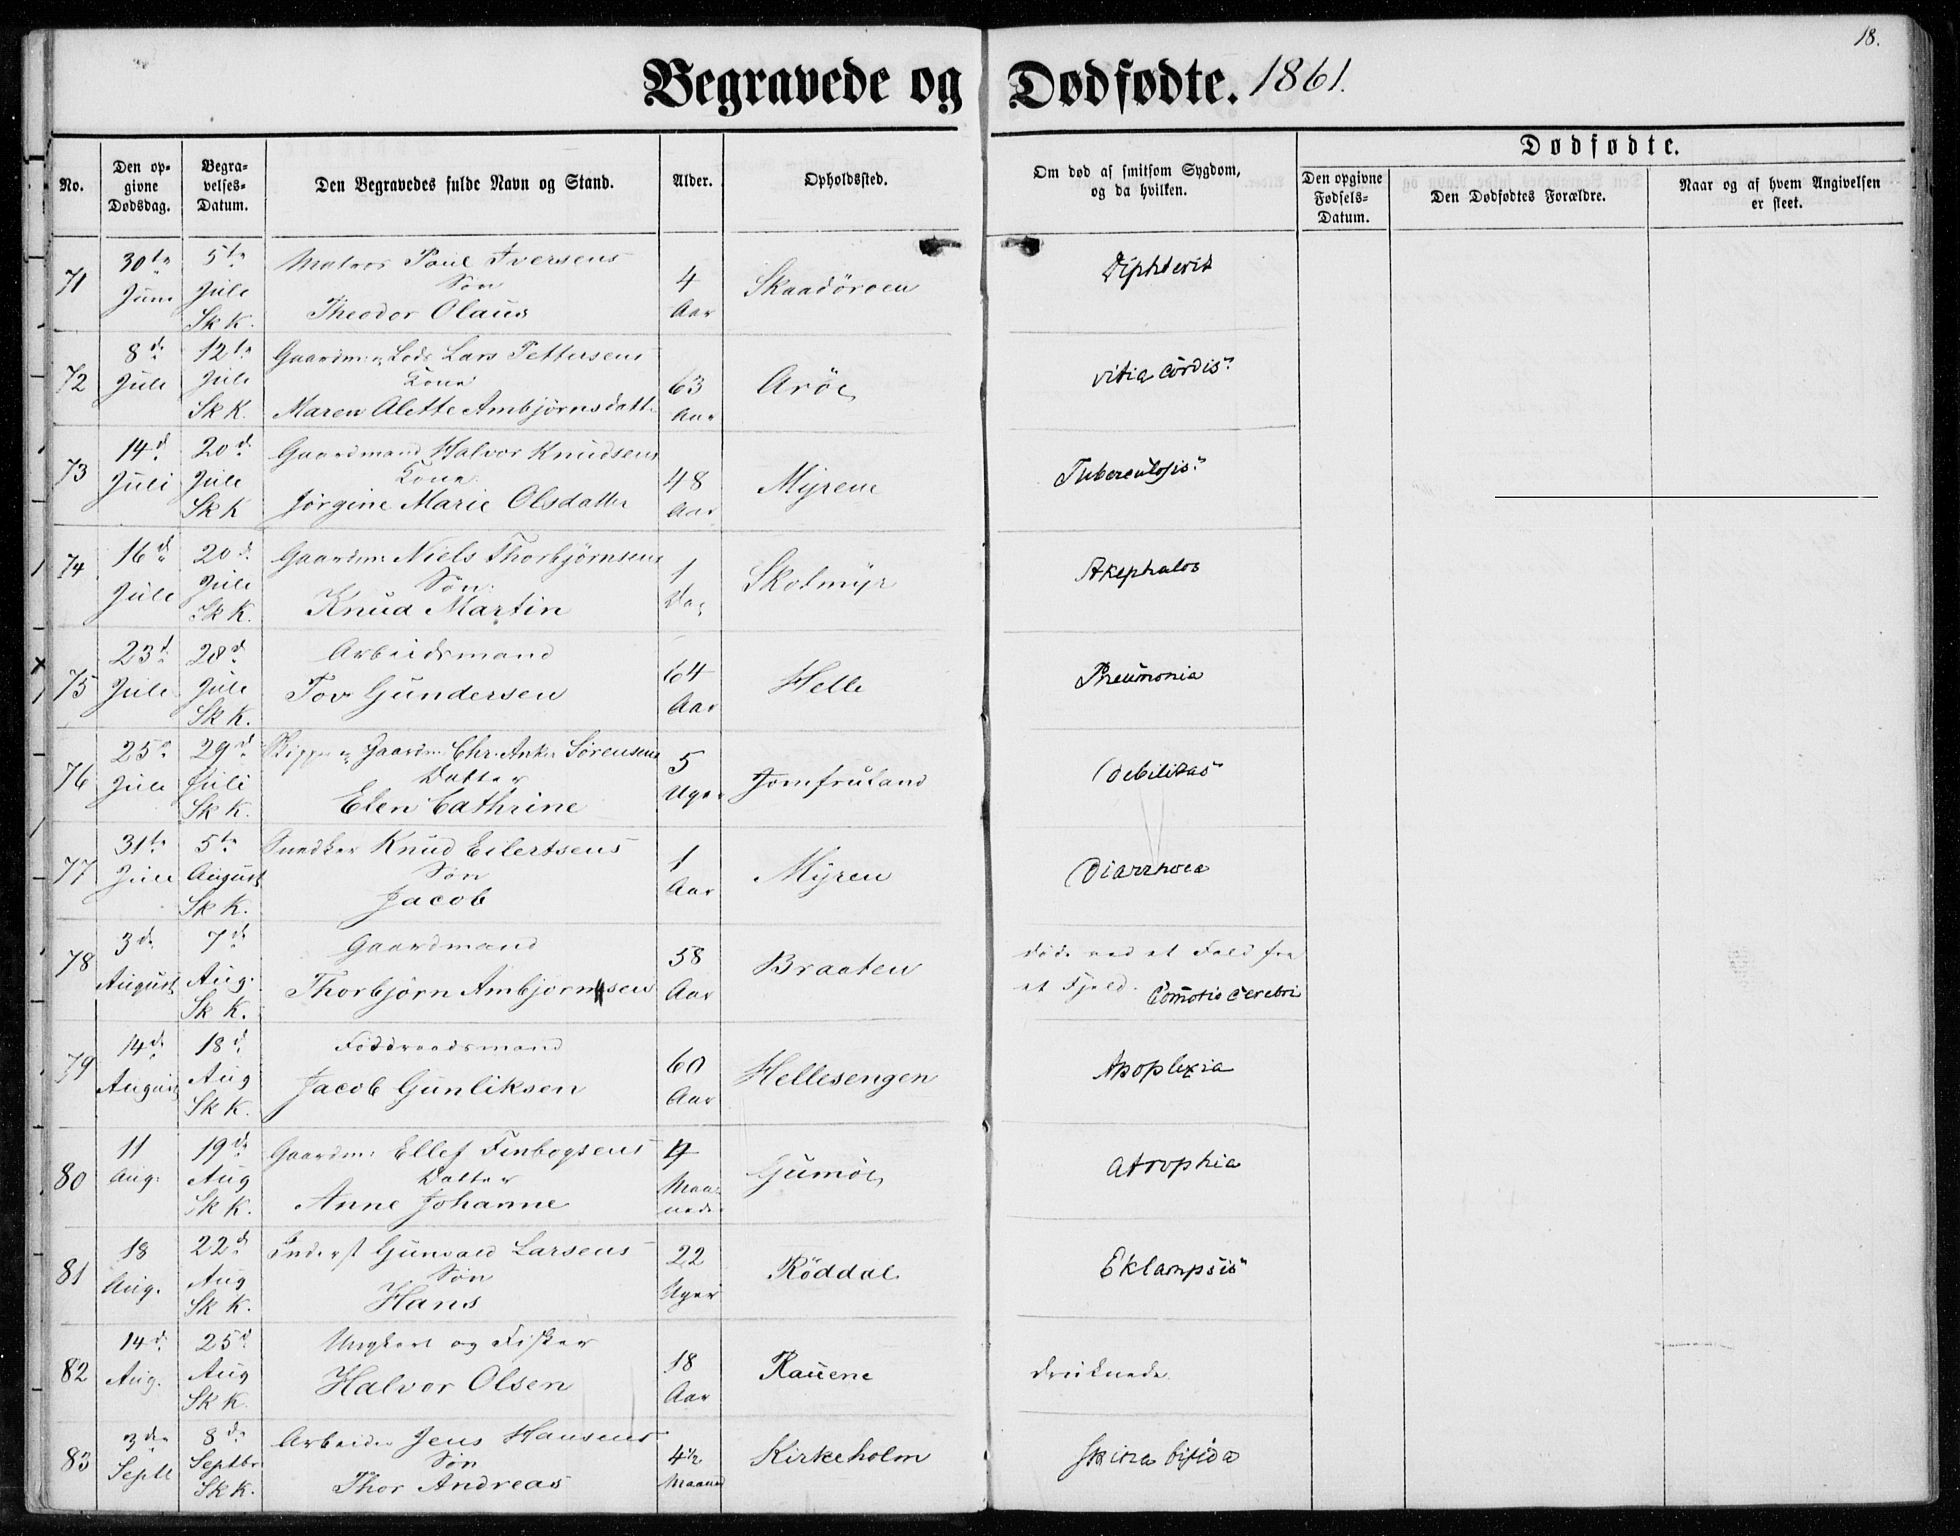 18.
Begravede og Dødfødte. 1861.
No.
Den op-
givne
Dødsdag.
Begra-
velses-
Datum.
Den Begravedes fulde Navn og Stand.
Alder.
Opholdssted.
Om død af smitsom Sygdom,
og da hvilken.
Dødfødte.
Den opgivne
Fødsels-
Datum.
Den Dødfødtes Forældre.
Naar og af hvem Angivelsen
er skeet.
71
30te
Juni
5te
Juli
Sk K.
Matros Poul Iversens
Søn
Theodor Olaus
4
Aar
Skaadøroen
Diphterit
72
8de
Juli
12te
Juli
Sk K.
Gaardm. Lods Lars Pettersens
Kone
Maren Alette Ambjørnsdatt.
63
Aar
Arøe
vitia cordis
73
14d.
Juli
20d.
Juli
Sk K
Gaardmand Halvor Knudsens
Kone
Jørgine Marie Olsdatter
48
Aar
Myrene
Tuberculosis
74
16d.
Juli
20d.
Juli
Sk K.
Gaardm. Niels Thorbjørnsens
Søn
Knud Martin
1
Dag
Skolmyr
Akephalos
75
23d.
Juli
28d.
Juli
Sk K.
Arbeidsmand
Tov Gundersen
64
Aar
Helle
Pneumonia
76
25d
Juli
29d
Juli
Sk K.
Skipper og Gaardm. Chr. Anker Sørensens
Datter
Elen Cathrine
5
Uger
Jomfruland
Debilitas
77
31te
Juli
5te
August
Sk K.
Snedker Knud Eilertsens
Søn
Jacob
1
Aar
Myren
Diarrhoea
78
3de
August
7de
Aug.
Sk K.
Gaardmand
Thorbjørn Ambjørnsen
58
Aar
Braaten
døde ved et Fald fra
et Fjeld. Comotio Cerebri
79
14de
August
18d.
Aug
Sk K.
Føderaadsmand
Jacob Gunliksen
60
Aar
Hellesengen
Apoplexia
80
11
Aug.
19de
Aug
Sk K.
Gaardm. Ellef Finbogsens
Datter
Anne Johanne
4
Maa-
neder
Gumøe
Atrophia
81
18
Aug.
22d
Aug
Sk K.
Inderst Gunvald Larsens
Søn
Hans
22
Uger
Røddal
Eklampsis
82
14d.
Aug.
25d
Aug
Sk K.
Ungkarl og Fisker
Halvor Olsen
18
Aar
Rauene
druknede
83
3de
Septb
8de
Septbr
Sk K.
Arbeider Jens Hansens
Søn
Thor Andreas
4½
Maaned
Kirkeholm
Spina bifida